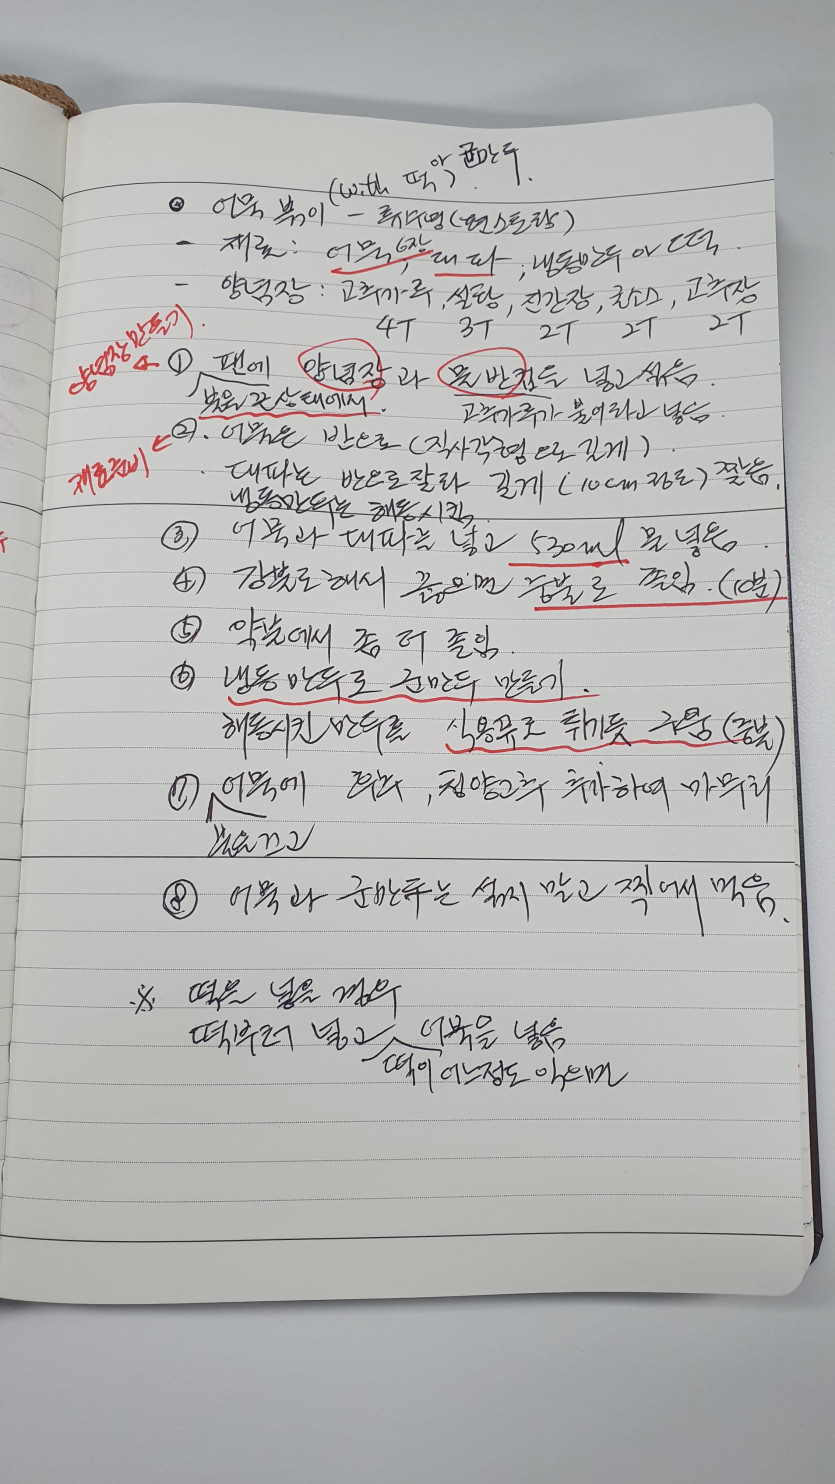 (with 떡) or 군만두.
어묵 볶이 - 류수영(편스토랑)
- 재료: 어묵 6장, 대파, 냉동만두 or 떡.
- 양념장: 고추가루, 설탕, 진간장, 굴소스, 고추장
4T 3T 2T 2T 2T
양념장 만들기.
① 팬에 양념장과 물 반컵을 넣고 섞음.
불을 끈 상태에서. 고추가루가 불어라고 넣음.
재료준비
②. 어묵은 반으로 (직사각형으로 길게).
대파는 반으로 잘라 길게 (10cm 정도) 짤음.
냉동만두는 해동시킴.
③ 어묵과 대파를 넣고 530ml 물 넣음.
④ 강불로 해서 끓으면 중불로 졸임. (10분)
⑤ 약불에서 좀 더 졸임.
⑥ 냉동만두로 군만두 만들기.
해동시킨 만두를 식용유로 튀기듯 구움 (중불)
⑦ 어묵에 청양고추 추가하여 마무리
불을 끄고
⑧ 어묵과 군만두는 섞지 말고 찍어서 먹음.
※ 떡을 넣을 경우
떡부터 넣고 어묵을 넣음
떡이 어느정도 익으면